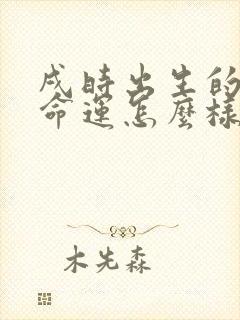 戌時出生的
命運怎麼樣
木先森